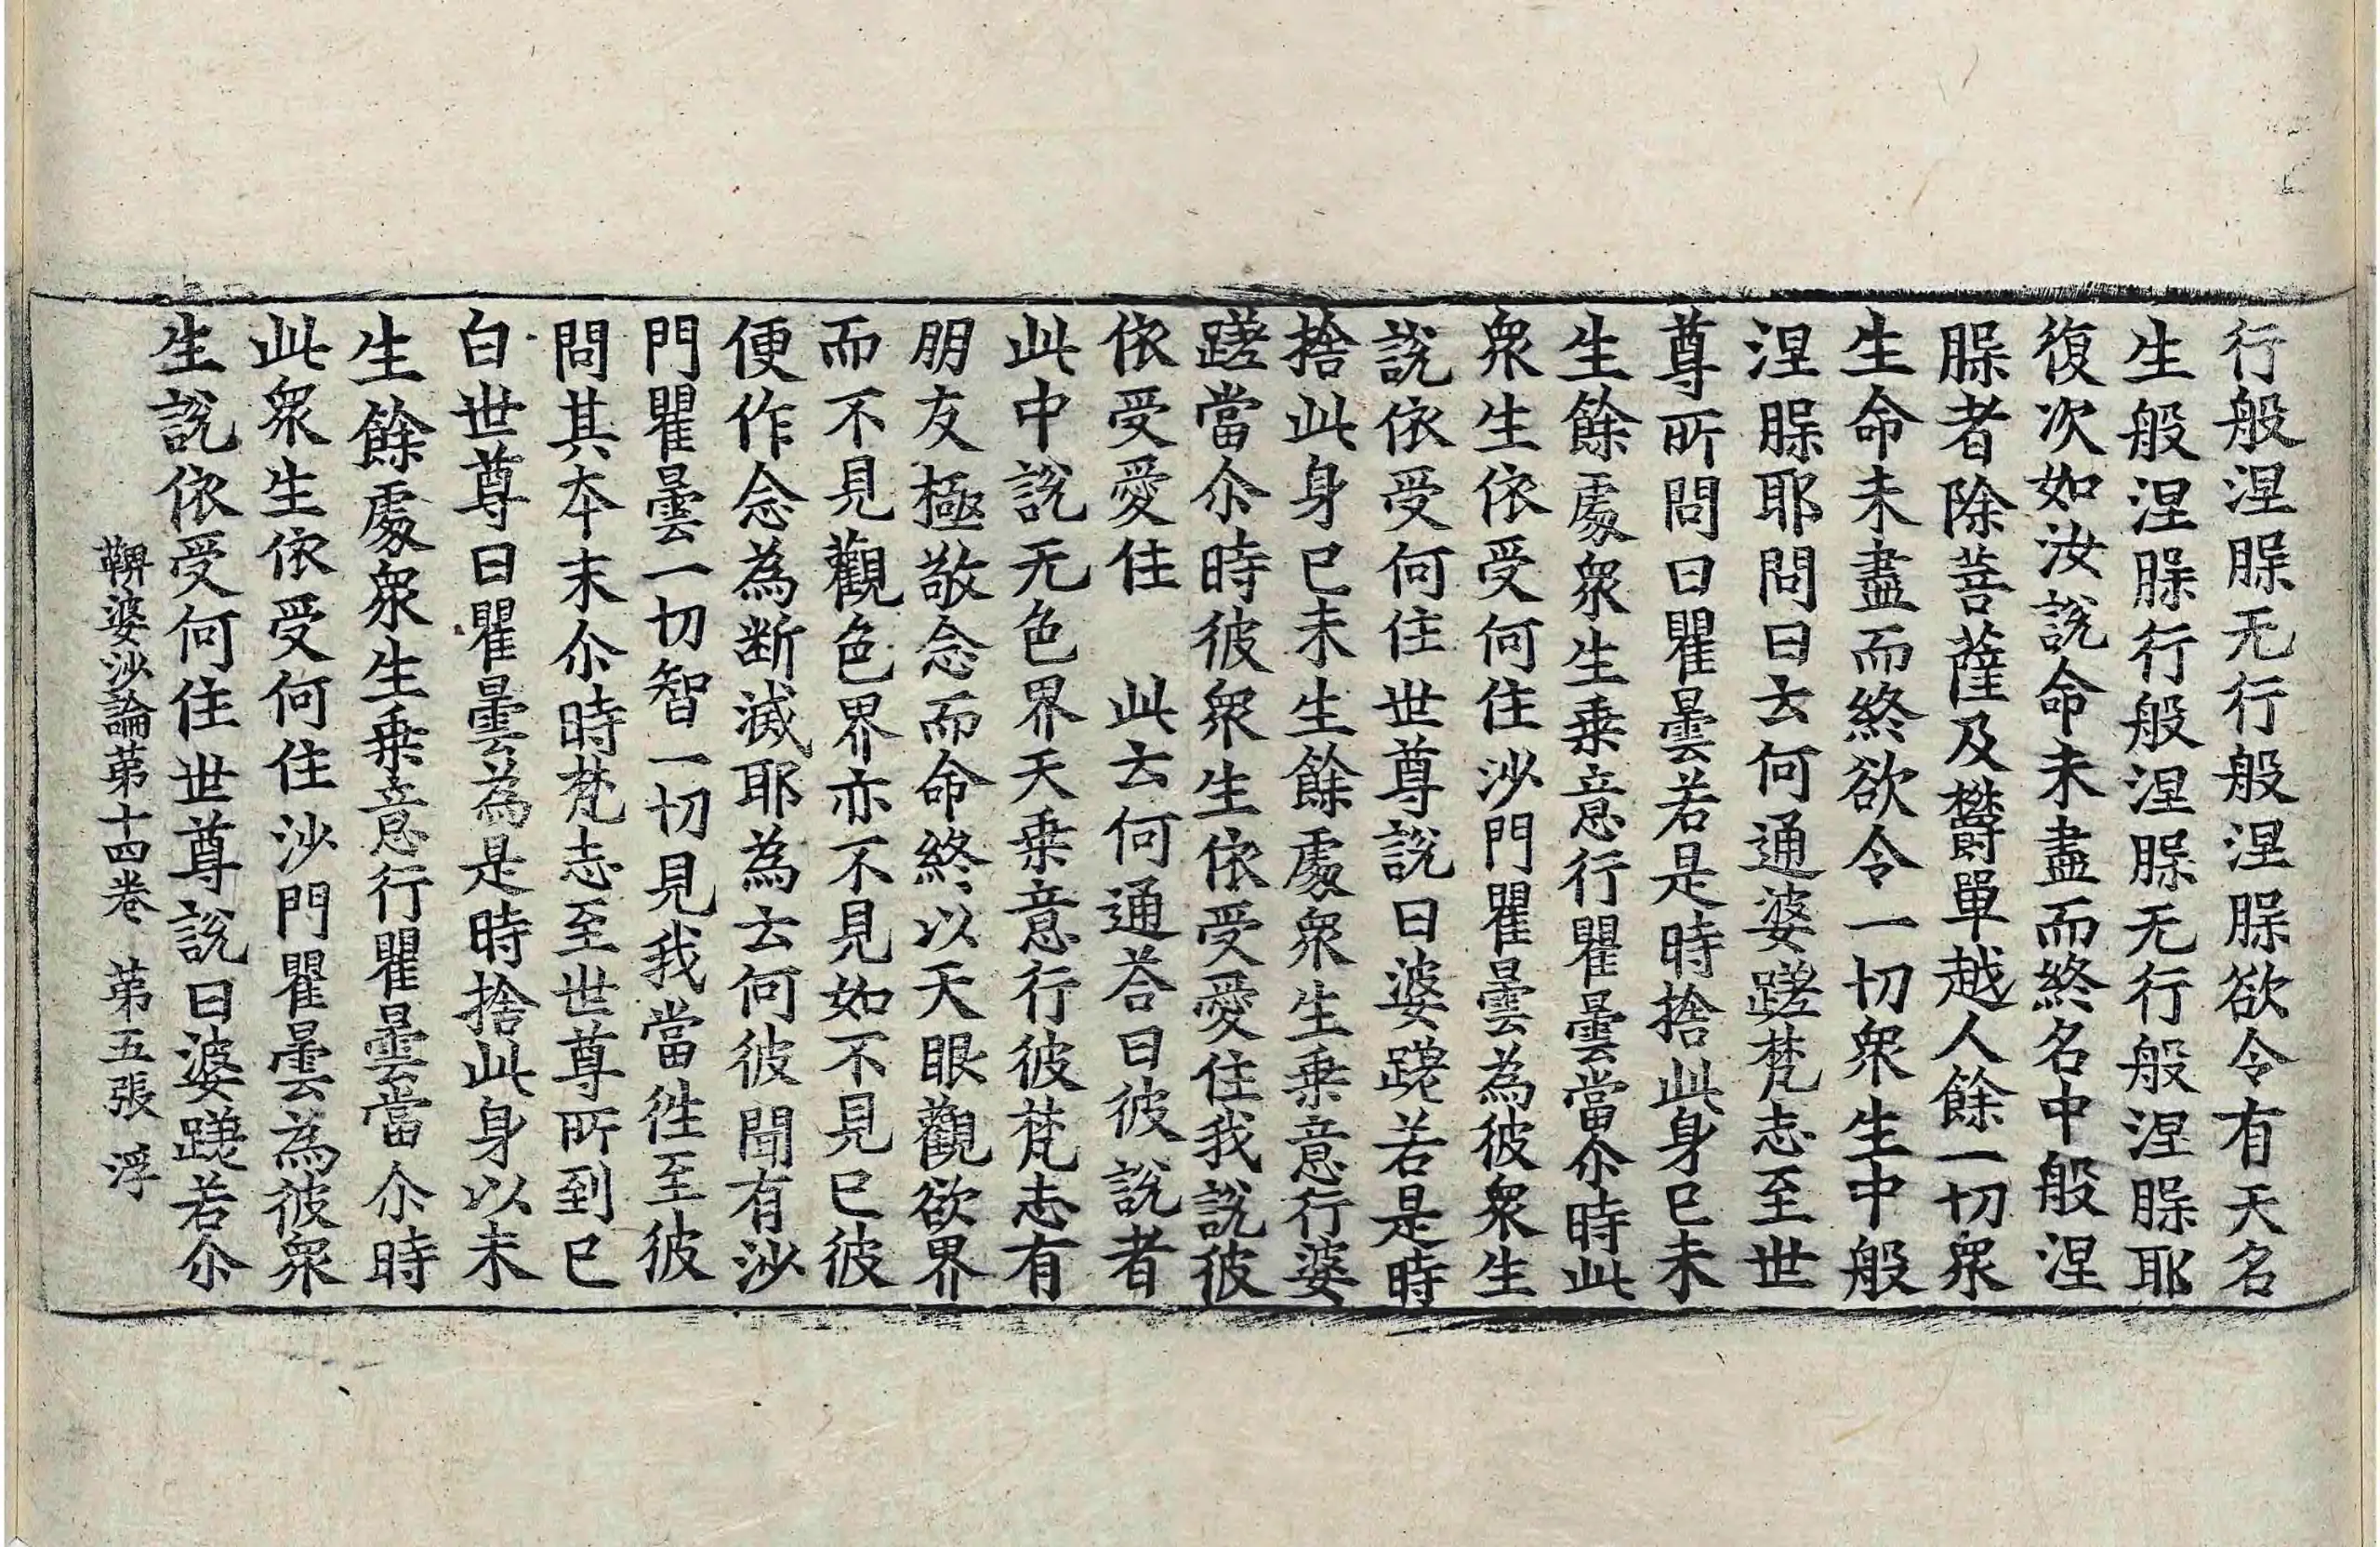 行般涅脲无行般涅脲欲令有天名
生般涅脲行般涅脲无行般涅脲耶
復次如汝說命未盡而終名中般涅
脲者除菩薩及欝單越人餘一切衆
生命未盡而終欲令一切衆生中般
涅脲耶問曰云何通婆蹉梵志至世
尊所問曰瞿曇若是時捨此身已未
生餘處衆生乗意行瞿曇當尒時此
衆生依受何住沙門瞿曇為彼衆生
說依受何住世尊說曰婆蹉若是時
捨此身已未生餘處衆生乗意行婆
蹉當尒時彼衆生依受愛住我說彼
依受愛住　此云何通荅曰彼說者
此中說无色界天乗意行彼梵志有
朋友極敬念而命終以天眼觀欲界
而不見觀色界亦不見如不見已彼
便作念為断滅耶為云何彼聞有沙
門瞿曇一切智一切見我當徃至彼
問其本末尒時梵志至世尊所到已
白世尊曰瞿曇為是時捨此身以未
生餘處衆生乗意行瞿曇當尒時
此衆生依受何住沙門瞿曇為彼衆
生說依受何住世尊說曰婆蹉若尒
鞞婆沙論苐十四卷　苐五張　浮